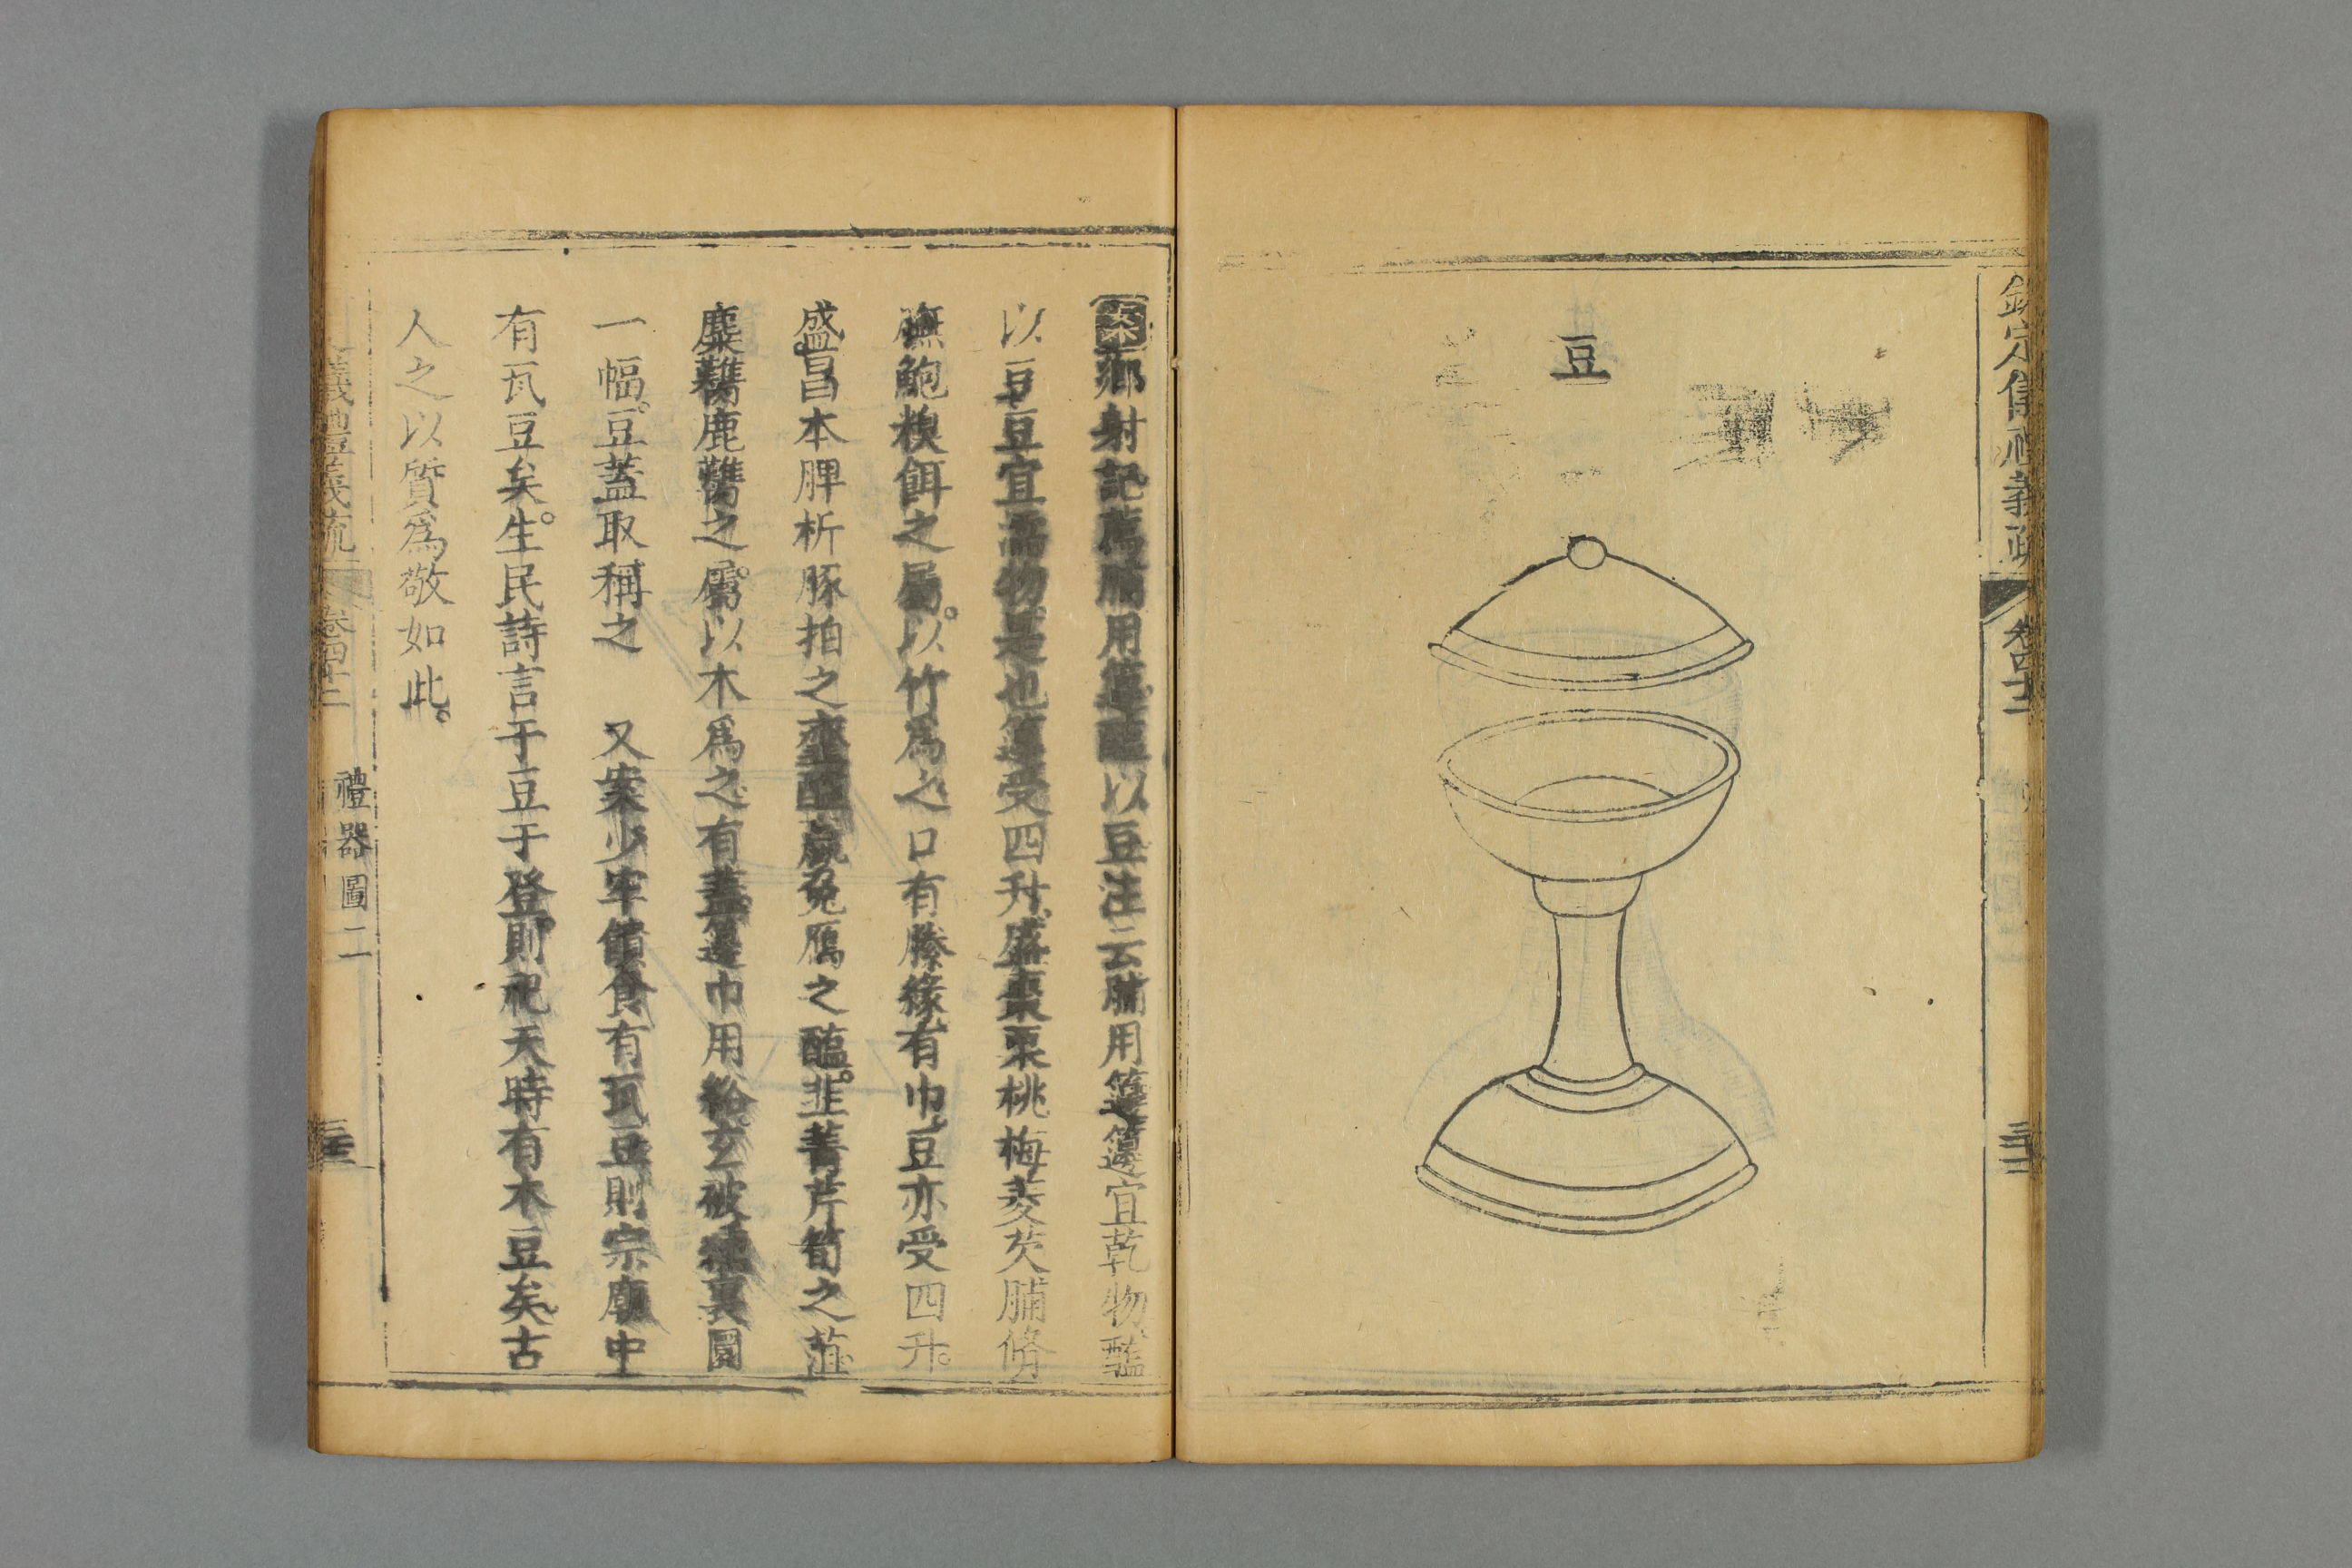 豆
案鄉射記薦脯用籩醢以豆注云脯用籩籩宜乾物醢
以豆豆宜濡物是也籩受四升盛棗栗桃梅菱芡脯脩
膴鮑糗餌之屬以竹爲之口有縢緣有巾豆亦受四升
盛昌本脾析豚拍之齏醢蠃兔鴈之醢韭菁芹筍之菹
麋鸛鹿鸛之屬以木爲之有蓋籩巾用綌玄被纁裏圜
一幅豆蓋取稱之 又案少牢饋食有瓦豆則宗廟中
有瓦豆矣生民詩言于豆于登則祀天時有木豆矣古
人之以質爲敬如此
卷四十二 禮器圖二